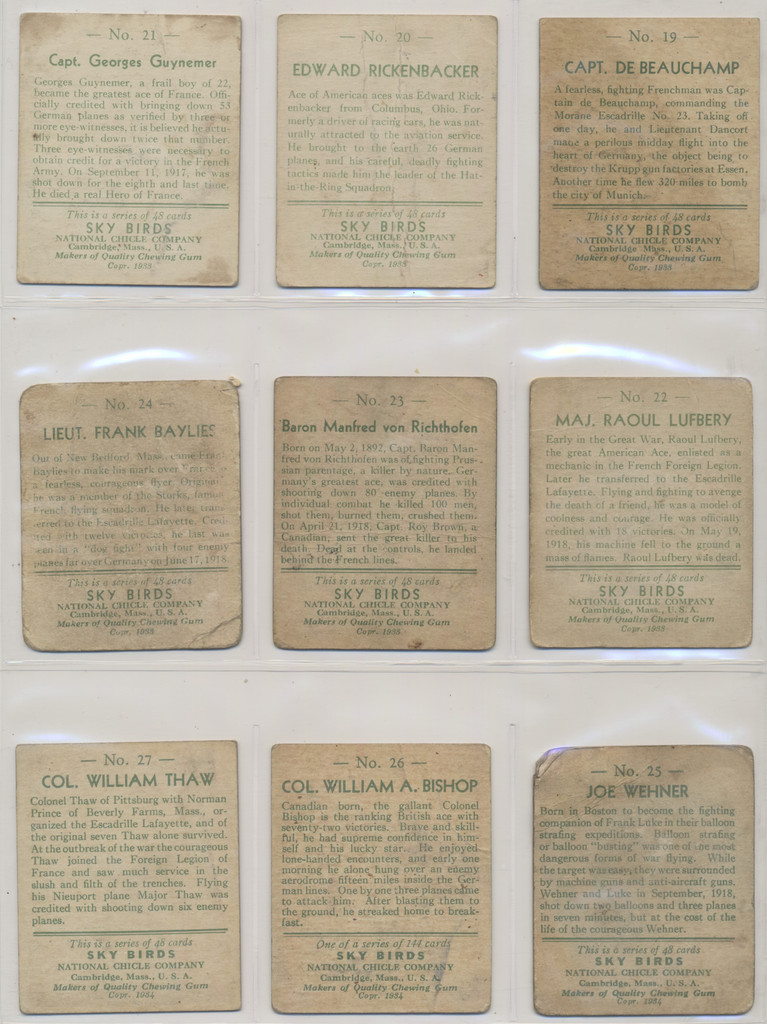 — No. 21 —
Capt. Georges Guynemer
Georges Guynemer, a frail boy of 22,
became the greatest ace of France. Offi-
cially credited with bringing down 53
German planes as verified by three or
more eye-witnesses, it is believed he actu-
ally brought down twice that number.
Three eye-witnesses were necessary to
obtain credit for a victory in the French
Army. On September 11, 1917, he was
shot down for the eighth and last time.
He died a real Hero of France.
This is a series of 48 cards
SKY BIRDS
NATIONAL CHICLE COMPANY
Cambridge, Mass., U. S. A.
Makers of Quality Chewing Gum
Copr. 1933
— No. 20 —
EDWARD RICKENBACKER
Ace of American aces was Edward Rick-
enbacker from Columbus, Ohio. Form-
erly a driver of racing cars, he was nat-
urally attracted to the aviation service.
He brought to the earth 26 German
planes, and his careful, deadly fighting
tactics made him the leader of the Hat-
in-the-Ring Squadron.
This is a series of 48 cards
SKY BIRDS
NATIONAL CHICLE COMPANY
Cambridge, Mass., U. S. A.
Makers of Quality Chewing Gum
Copr. 1933
— No. 19 —
CAPT. DE BEAUCHAMP
A fearless, fighting Frenchman was Cap-
tain de Beauchamp, commanding the
Morane Escadrille No. 23. Taking off
one day, he and Lieutenant Dancort
made a perilous midday flight into the
heart of Germany, the object being to
destroy the Krupp gun factories at Essen.
Another time he flew 320 miles to bomb
the city of Munich.
This is a series of 48 cards
SKY BIRDS
NATIONAL CHICLE COMPANY
Cambridge, Mass., U. S. A.
Makers of Quality Chewing Gum
Copr. 1933
— No. 24 —
LIEUT. FRANK BAYLIES
Out of New Bedford, Mass., came Frank
Baylies to make his mark over France as
a fearless, courageous flyer. Originally
he was a member of the Storks, famous
French flying squadron. He later trans-
ferred to the Escadrille Lafayette. Cred-
ited with twelve victories, he last was
seen in a "dog fight" with four enemy
planes far over Germany on June 17, 1918.
This is a series of 48 cards
SKY BIRDS
NATIONAL CHICLE COMPANY
Cambridge, Mass., U. S. A.
Makers of Quality Chewing Gum
Copr. 1933
— No. 23 —
Baron Manfred von Richthofen
Born on May 2, 1892, Capt. Baron Man-
fred von Richthofen was of fighting Prus-
sian parentage, a killer by nature. Ger-
many's greatest ace, was credited with
shooting down 80 enemy planes. By
individual combat he killed 100 men,
shot them, burned them, crushed them.
On April 21, 1918, Capt. Roy Brown, a
Canadian, sent the great killer to his
death. Dead at the controls, he landed
behind the French lines.
This is a series of 48 cards
SKY BIRDS
NATIONAL CHICLE COMPANY
Cambridge, Mass., U. S. A.
Makers of Quality Chewing Gum
Copr. 1933
— No. 22 —
MAJ. RAOUL LUFBERY
Early in the Great War, Raoul Lufbery,
the great American Ace, enlisted as a
mechanic in the French Foreign Legion.
Later he transferred to the Escadrille
Lafayette. Flying and fighting to avenge
the death of a friend, he was a model of
coolness and courage. He was officially
credited with 18 victories. On May 19,
1918, his machine fell to the ground a
mass of flames. Raoul Lufbery was dead.
This is a series of 48 cards
SKY BIRDS
NATIONAL CHICLE COMPANY
Cambridge, Mass., U. S. A.
Makers of Quality Chewing Gum
Copr. 1933
— No. 27 —
COL. WILLIAM THAW
Colonel Thaw of Pittsburg with Norman
Prince of Beverly Farms, Mass., or-
ganized the Escadrille Lafayette, and of
the original seven Thaw alone survived.
At the outbreak of the war the courageous
Thaw joined the Foreign Legion of
France and saw much service in the
slush and filth of the trenches. Flying
his Nieuport plane Major Thaw was
credited with shooting down six enemy
planes.
This is a series of 48 cards
SKY BIRDS
NATIONAL CHICLE COMPANY
Cambridge, Mass., U. S. A.
Makers of Quality Chewing Gum
Copr. 1934
— No. 26 —
COL. WILLIAM A. BISHOP
Canadian born, the gallant Colonel
Bishop is the ranking British ace with
seventy-two victories. Brave and skill-
ful, he had supreme confidence in him-
self and his lucky star. He enjoyed
lone-handed encounters, and early one
morning he alone hung over an enemy
aerodrome fifteen miles inside the Ger-
man lines. One by one three planes came
to attack him. After blasting them to
the ground, he streaked home to break-
fast.
One of a series of 144 cards
SKY BIRDS
NATIONAL CHICLE COMPANY
Cambridge, Mass., U. S. A.
Makers of Quality Chewing Gum
Copr. 1934
— No. 25 —
JOE WEHNER
Born in Boston to become the fighting
companion of Frank Luke in their balloon
strafing expeditions. Balloon strafing
or balloon "busting" was one of the most
dangerous forms of war flying. While
the target was easy, they were surrounded
by machine guns and anti-aircraft guns.
Wehner and Luke in September, 1918,
shot down two balloons and three planes
in seven minutes, but at the cost of the
life of the courageous Wehner.
This is a series of 48 cards
SKY BIRDS
NATIONAL CHICLE COMPANY
Cambridge, Mass., U. S. A.
Makers of Quality Chewing Gum
Copr. 1934